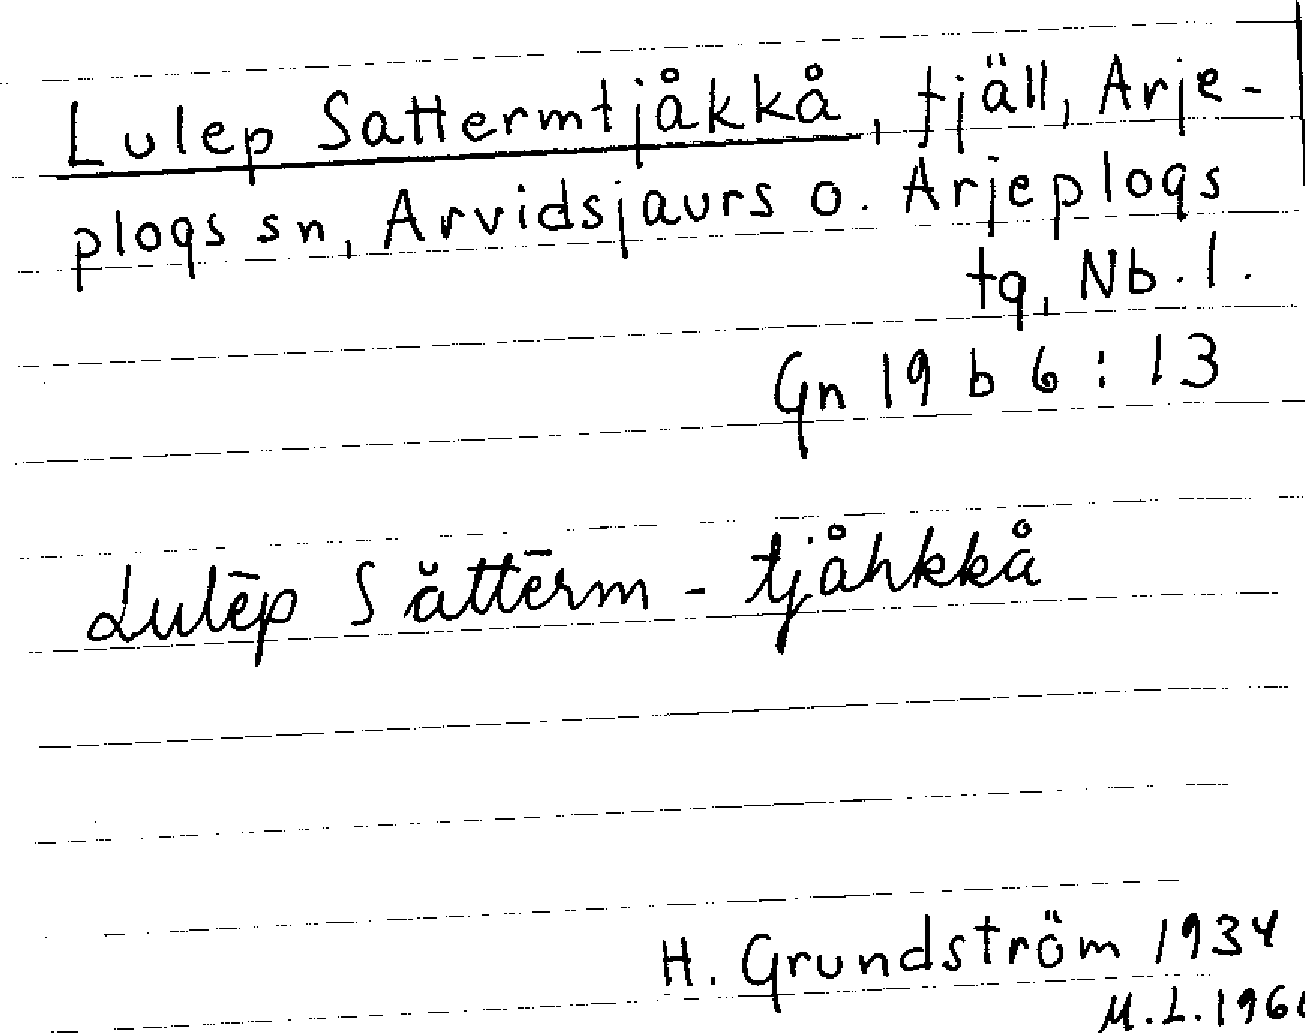 Lulep Sattermtjåkkå, fjäll, Arje-
plogs sn, Arvidsjaurs o. Arjeplogs
tg, Nb. l.
Gn 19 b 6 : 13
Lulēp Sǎttērm - tjåhkkå
H. Grundström 1934
M.L.